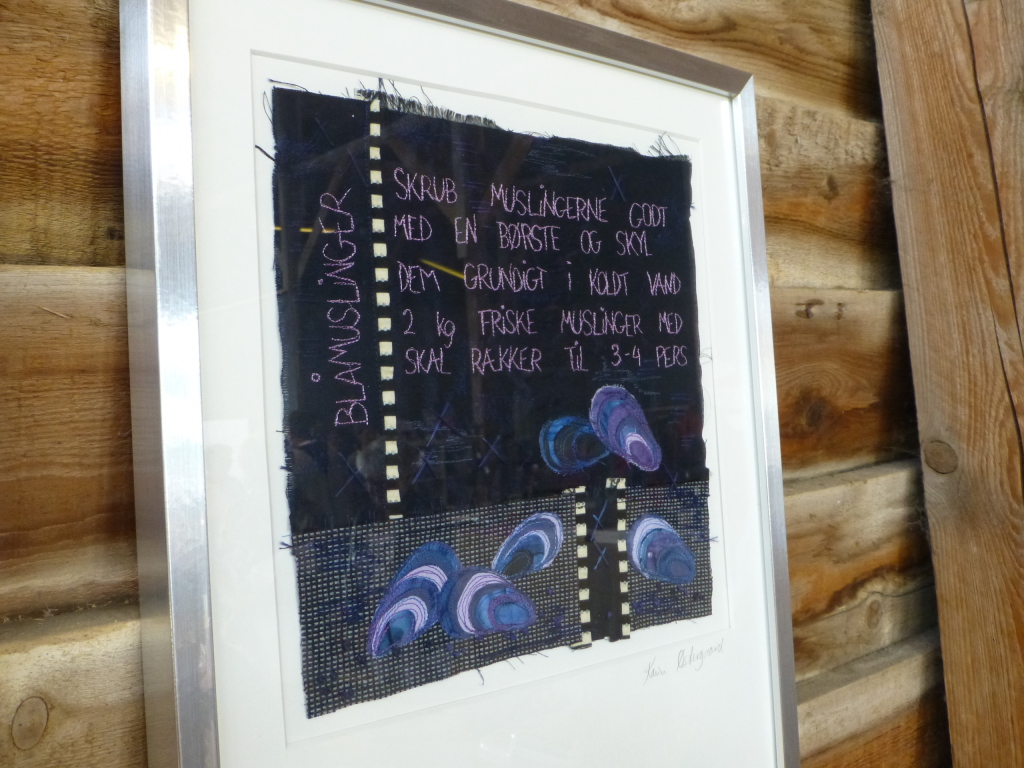 BLÅMUSLINGER
SKRUB MUSLINGERNE GODT
MED EN BØRSTE OG SKYL
DEM GRUNDIGT i KOLDT VAND
2 kg FRISKE MUSLINGER MED
SKAL RÆKKER TiL 3-4 PERS